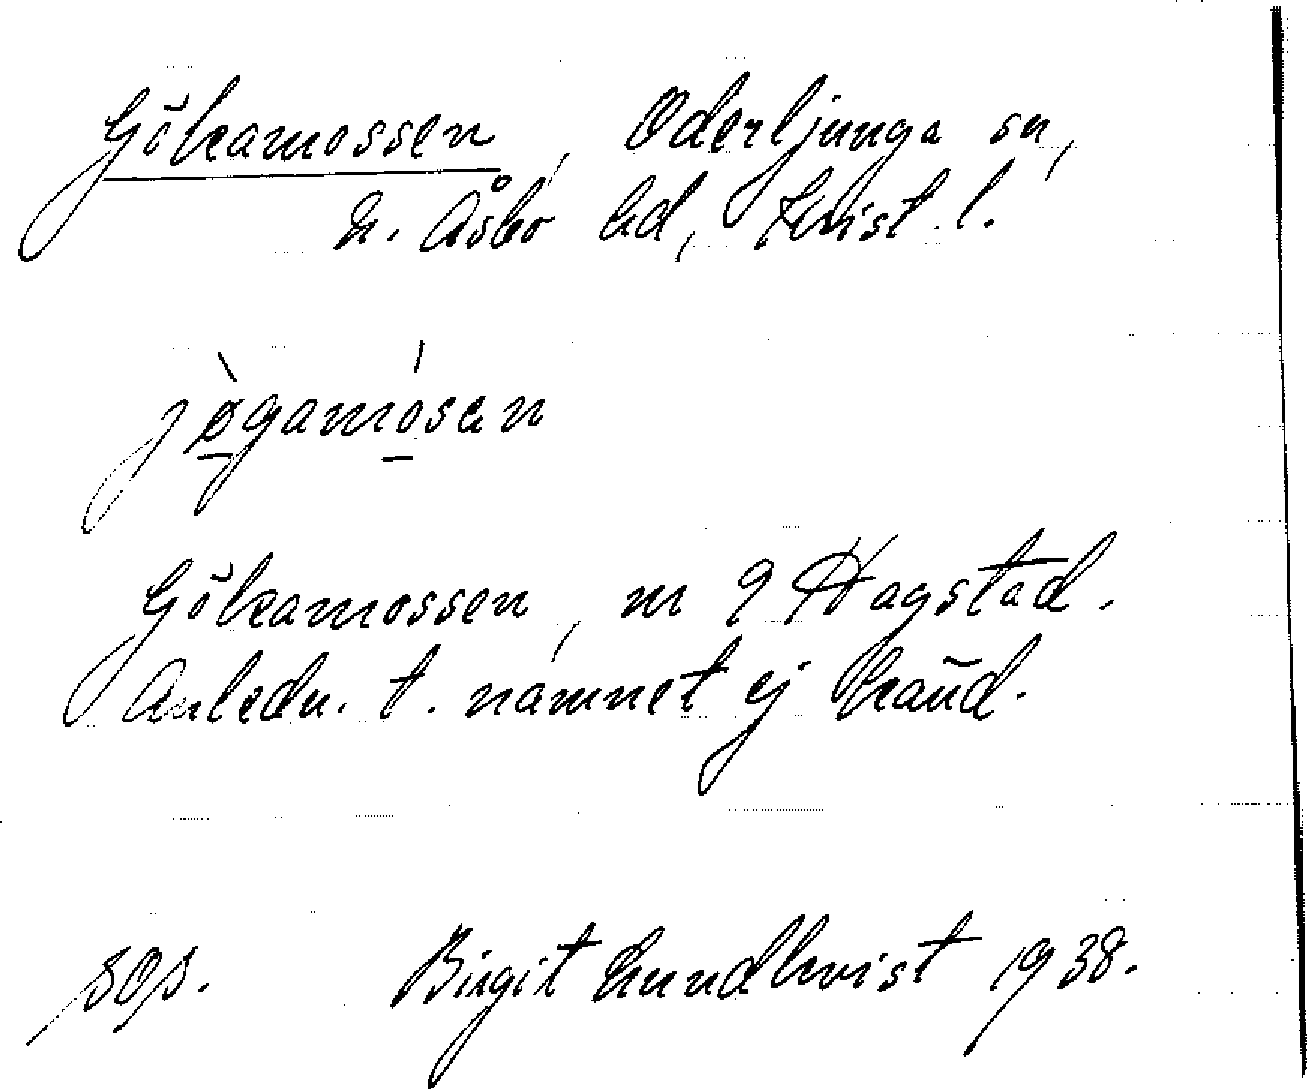 Gökamossen, Oderljunga sn,
N. Åsbo hd, Krist. l.
jø̀gamósen
Gökamossen, m 9 Hagstad.
Anledn. t. namnet ej känd.
sop.
Birgit Lundkvist 1938.